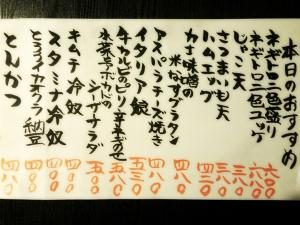 本日のおすすめ
ネギトロ三色盛り 六〇〇
ネギトロ二色ユッケ 六八〇
じゃこ天 三八〇
さつまいも天 三八〇
ハムエッグ 四三〇
カニ味噌の米なすグラタン 四八〇
アスパラチーズ焼き 四八〇
イタリア娘 五三〇
牛カルビのピリ辛ネギのせ 五八〇
水菜とアボカドのシーザーサラダ 五〇〇
キムチ冷奴 四〇〇
スタミナ冷奴 四八〇
とろろイカオクラ納豆 四八〇
とんかつ 四八〇